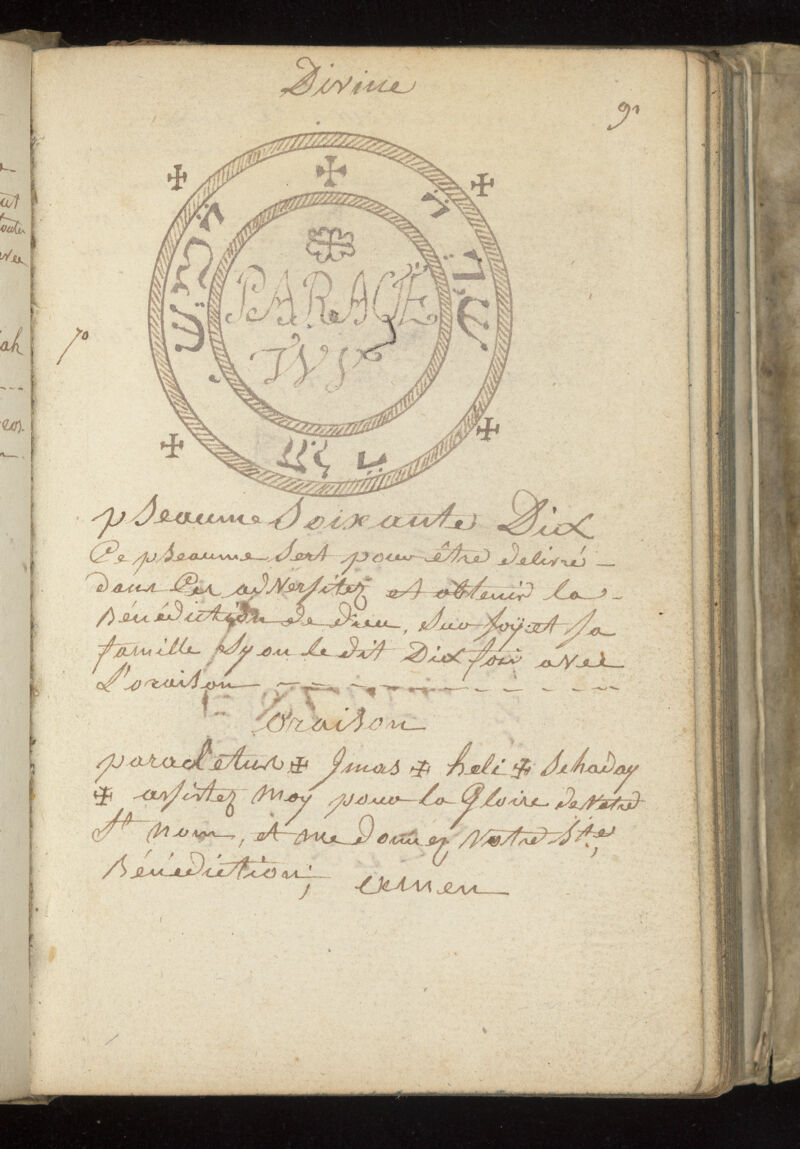 Divine
91
70
PARACE
TVS
pseaume Soixante Dix
Ce pseaume sert pour être delivré
dans Ces adversitez et obtenir la
Bénédiction de dieu, sur soÿ et sa
famille sy on le dit Dix fois avec
L'oraison
oraison
paracletus ✠ Jmas ✠ heli ✠ Schaday
✠ assistez moy pour la Gloire de votre
St nom, et me donnez votre Ste,
Bénédiction; amen